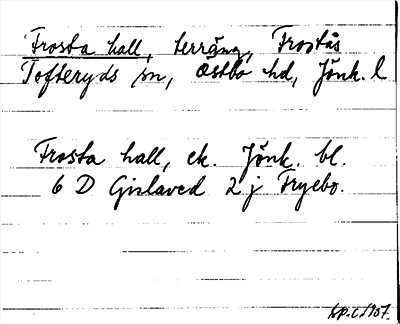 Frosta hall, terräng, Frostås
Tofteryds sn, Östbo hd, Jönk. l
Frosta hall, ek. Jönk. bl.
6 D Gislaved 2 j Fryebo.